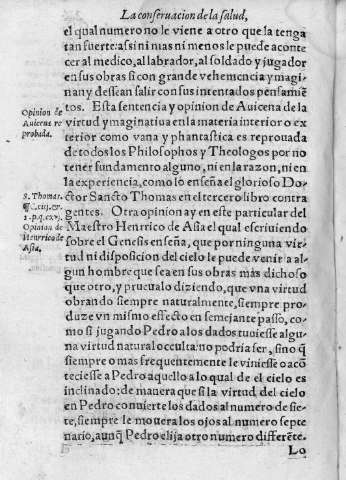 La conseruacion de la salud,
el qual numero no le viene a otro que la tenga
tan fuerte: assi ni mas ni menos le puede aconte
cer al medico, al labrador, al soldado y jugador
en sus obras si con grande vehemencia y magi-
nan y dessean salir con sus intentados pensamiē
tos. Esta sentencia y opinion de Auicena de la
virtud y maginatiua en la materia interior o ex
terior como vana y phantastica es reprouada
de todos los Philosophos y Theologos por no
tener fundamento alguno, ni en la razon, ni en
la experiencia, como lo enseña el glorioso Do-
ctor Sancto Thomas en el tercero libro contra
gentes. Otra opinion ay en este particular del
Maestro Henrrico de Asia el qual escriuiendo
sobre el Genesis enseña, que por ninguna vir
tud ni disposicion del cielo le puede venir a al-
gun hombre que sea en sus obras mas dichoso
que otro, y prueualo diziendo, que vna virtud
obrando siempre naturalmente, siempre pro-
duze vn mismo effecto en semejante passo, co-
mo si jugando Pedro a los dados tuuiesse algu-
na virtud natural occulta, no podria ser, sino q̄
siempre o mas frequentemente le viniesse o acō
teciesse a Pedro aquello a lo qual de el cielo es
inclinado; de manera que si la virtud del cielo
en Pedro conuierte los dados al numero de sie-
te, siempre le mouera los ojos al numero septe
nario, aunq̄ Pedro elija otro numero differēte.
Lo
Opinion de
Auicena re
probada.
S. Thomas.
Opinion de
Henrrico de
Asia.